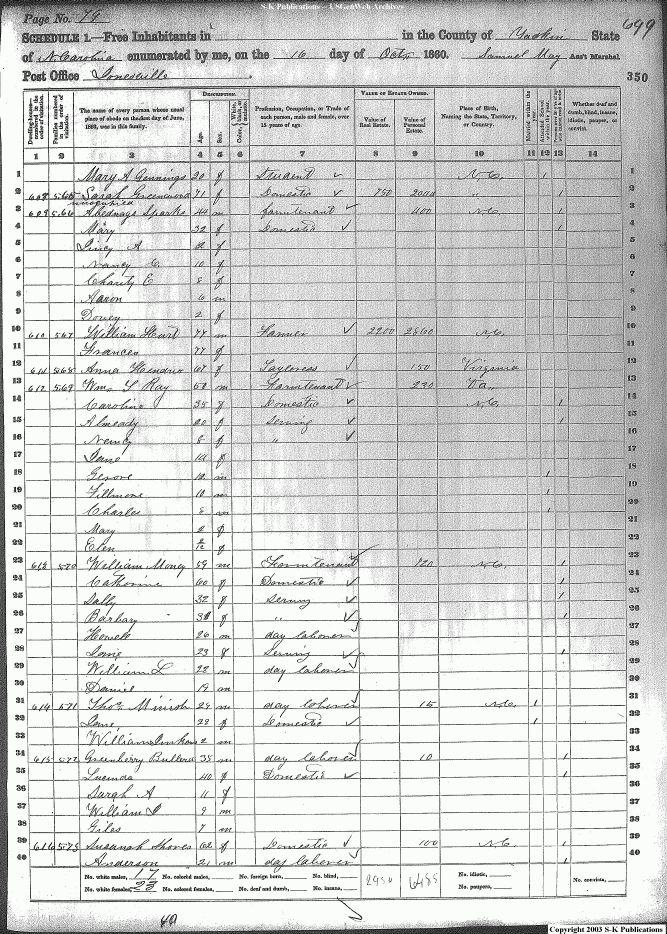 S-K Publications -- USGenWeb Archives
Page No. 79
699
SCHEDULE 1.—Free Inhabitants in in the County of Yadkin State
of N. Carolina enumerated by me, on the 16 day of Octr 1860. Samuel May Ass't Marshal
Post Office Jonesville 350
Dwelling-houses—numbered in the order of visitation. Families numbered in the order of visitation. The name of every person whose usual place of abode on the first day of June, 1860, was in this family. DESCRIPTION. Age. Sex. Color, Profession, Occupation, or Trade of each person, male and female, over 15 years of age. VALUE OF ESTATE OWNED. Value of Real Estate. Value of Personal Estate. Place of Birth, Naming the State, Territory, or Country. Married within the year. Attended School within the year. Whether deaf and dumb, blind, insane, idiotic, pauper, or convict.
1 2 3 4 5 6 7 8 9 10 11 12 13 14
1 Mary A Gennings 20 f Student ✓ N,C, / 1
2 608 565 Sarah Greenwood 71 f Domestic ✓ 750 2000 / 2
3 609 566 Abednago Sparks 44 m farmtenant ✓ 400 N,C, / 3
4 Mary 32 f Domestic ✓ / 4
5 A f 5
6 Nancy C. 10 f 6
7 Charity E 8 f 7
8 Aaron 6 m 8
9 2 f 9
10 610 567 William Hurt 77 m Farmer ✓ 2200 2560 N,C, 10
11 Frances 77 f 11
12 611 568 Anna 67 f Tayloress ✓ 150 Virginia 12
13 612 569 Wm. L Ray 50 m Farmtenant ✓ 230 Va,, 13
14 Caroline 35 f Domestic ✓ N,C, / 14
15 20 f Serving ✓ / 15
16 Nancy 8 f " ✓ 16
17 Jane 14 f 17
18 m / 18
19 Fillmore 10 m / 19
20 Charles 8 m / 20
21 Mary f 21
22 Elen 2/12 f 22
23 613 570 William Money 59 m Farmtenant 720 N,C, / 23
24 Catherine 60 f Domestic ✓ / 24
25 Sally 32 f Serving ✓ / 25
26 Barbary f " ✓ / 26
27 Howell 26 m day laborer 27
28 Jane 23 f Serving ✓ / 28
29 William L 22 m day laborer 29
30 Daniel 19 m 30
31 614 571 Thos. Minish 24 m day laborer 15 N,C, / 31
32 Jane 22 f Domestic ✓ / 32
33 William 2 m 33
34 615 572 Greenberry 35 m day laborer 10 / 34
35 Lucinda 40 f Domestic ✓ / 35
36 Sarah A 11 f 36
37 William 9 m 37
38 Giles 7 m 38
39 616 573 Susanah Shores 62 f Domestic ✓ 100 N,C, / 39
40 Anderson 21 m day laborer / 40
No. white males, 17 No. colored males, No. foreign born, No. blind, 2950 6485 No. idiotic, No. convicts,
No. white females, 23 No. colored females, No. deaf and dumb, No. insane, No. paupers,
40
Copyright 2003 S-K Publications